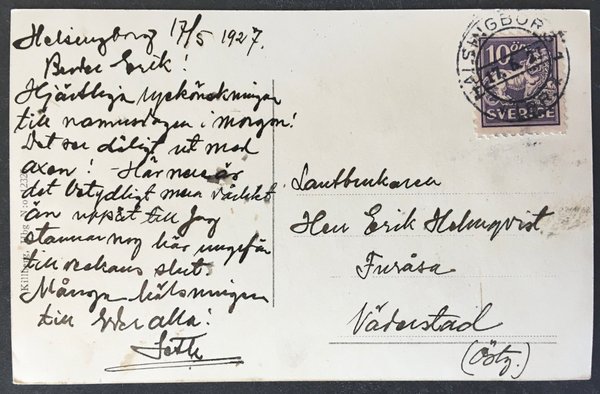 Helsingborg 17/5 1927.
Broder Erik!
Hjärtliga lyckönskningar
till namnsdagen i morgon!
Det ser dåligt ut med
axen! Här nere är
det betydligt mera vackert
än uppåt till. Jag
stannar nog här ungefär
till veckans slut.
Många hälsningar
till Eder alla!
Seth
HÄLSINGBORG 1
10 ÖRE
SVERIGE
Lantbrukaren
Herr Erik Holmqvist
Furåsa
Väderstad
(Östg.)
Killberg, Hbg N:o